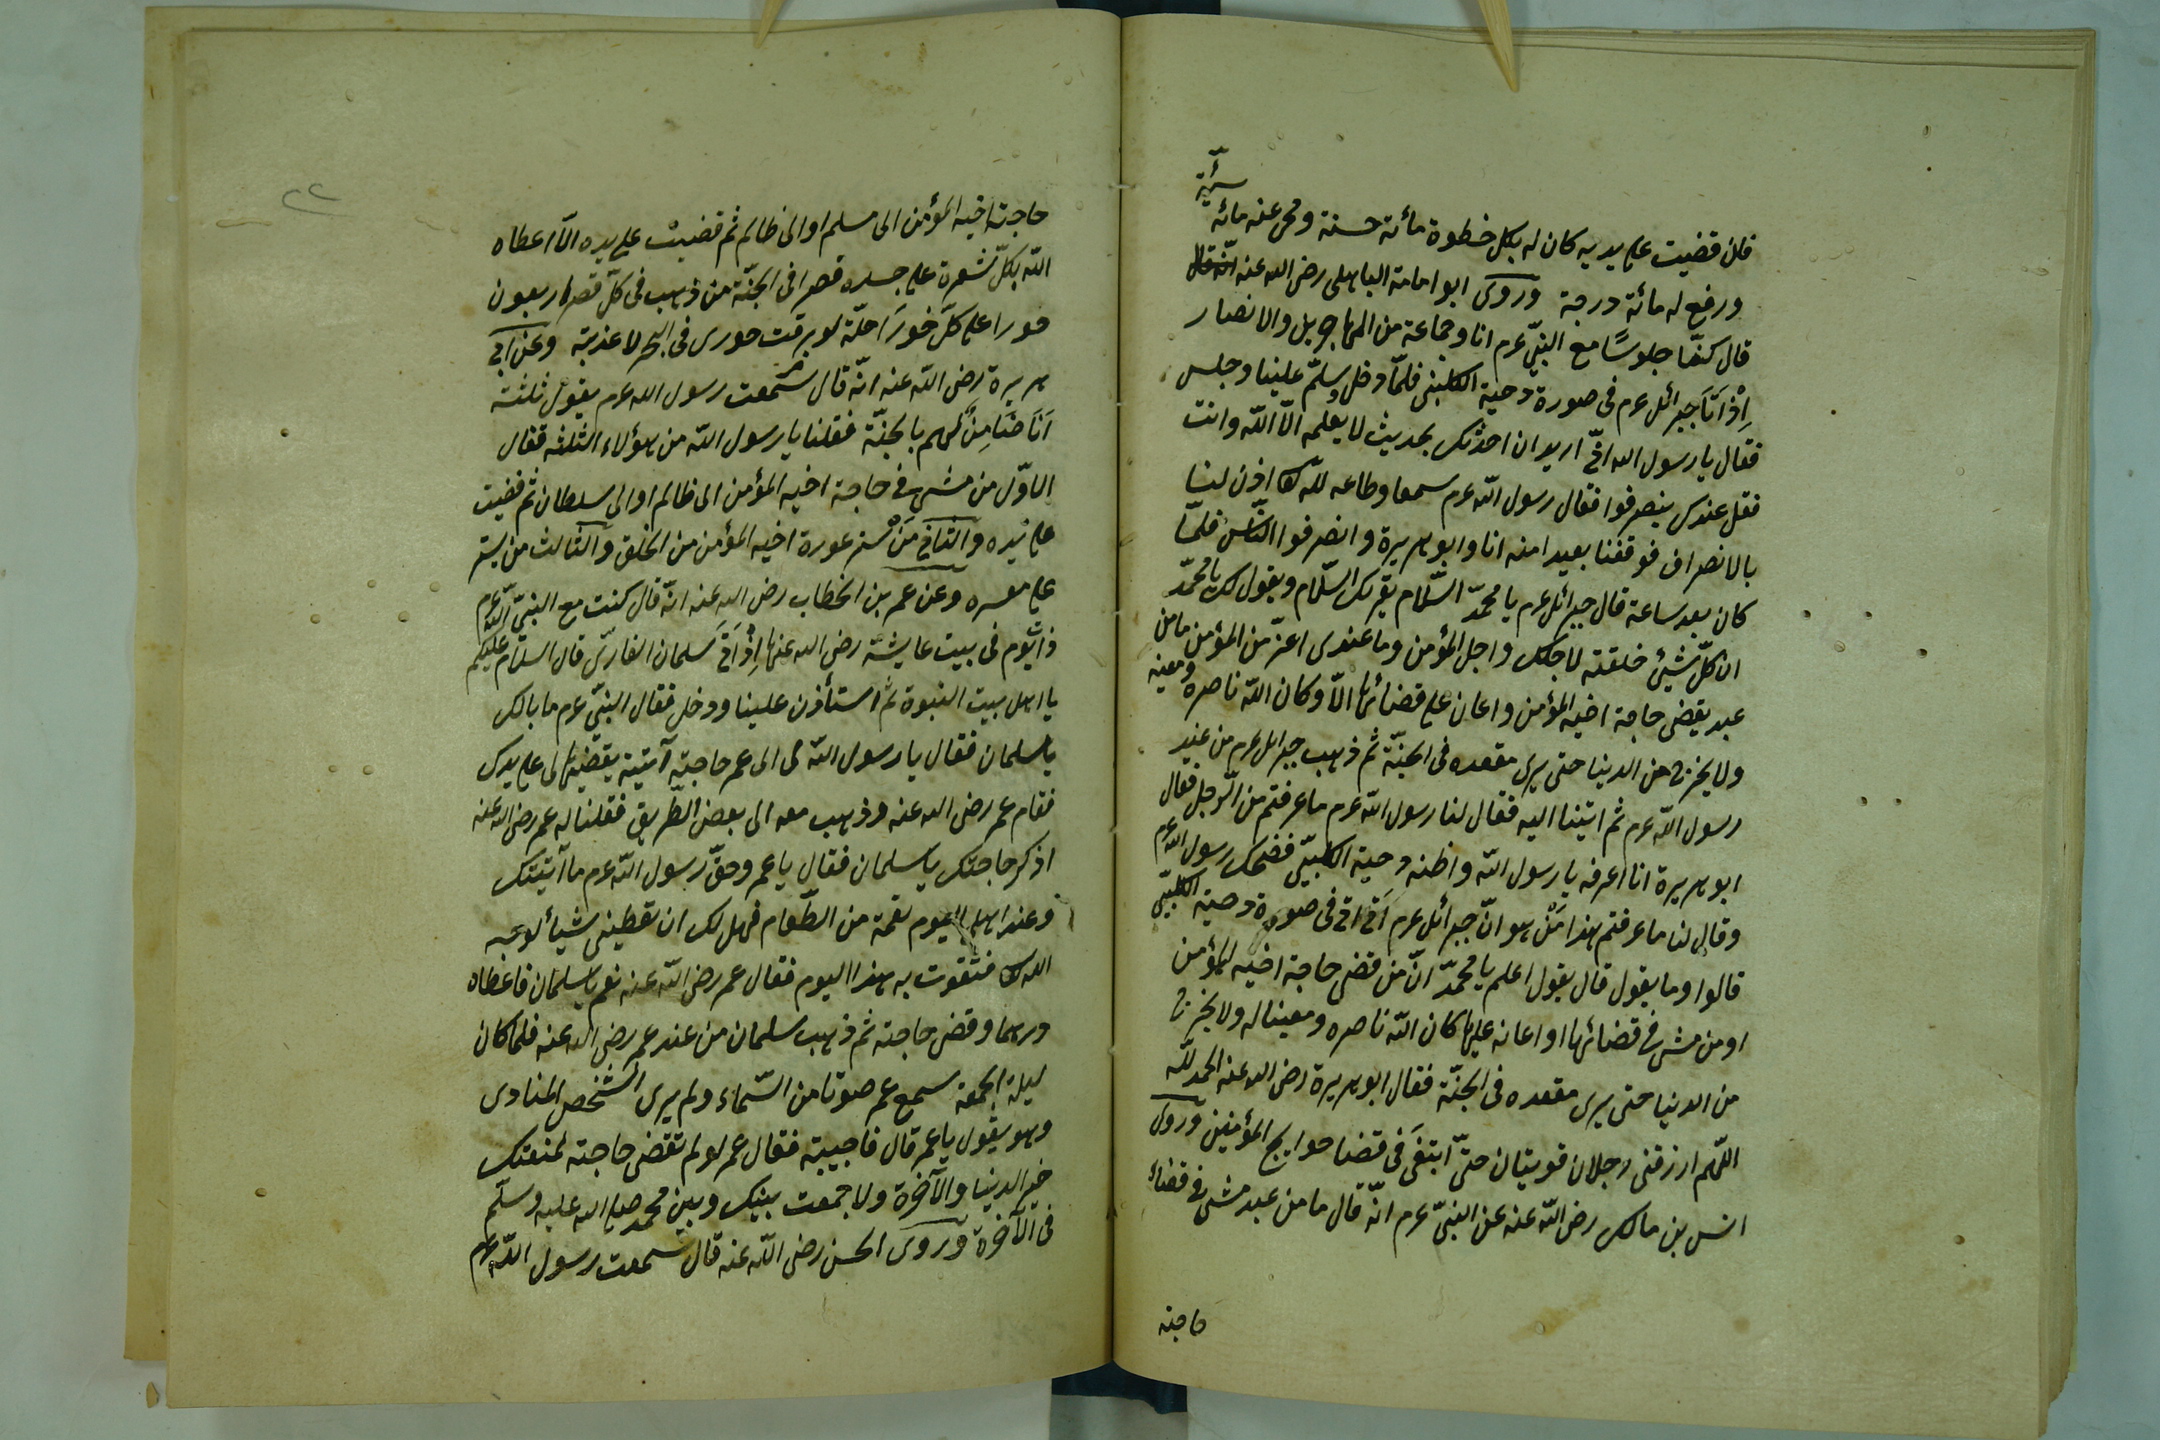 سيّئة
فان قضيت على يديه كان له بكل خطوة مائة حسنة ومحى عنه مائة
ورفع له مائة درجة وروى ابو امامة الباهلى رضى الله عنه انّه قال
قال كنّا جلوسًا مع النبىّ عم انا وجماعة من المهاجرين والانصار
اِذْ اَتَا جبرائل عم فى صورة دحية الكلبىّ فلمّا دخل وسلّم علينا وجلس
فقال يا رسول الله انّى اريد ان احدّثك بحديث لا يعلمه الاّ الله وانت
فقل عندك ينصرفوا فقال رسول الله عم سمعا وطاعه لله اذن لنا
بالانصراف فوقفنا بعيدا منه انا وابو هريرة وانصرفوا النّاس فلمّا
كان بعد ساعة قال جبرائل عم يا محمّد السّلام يقرئك السّلام ويقول لك يا محمّد
ان كلّ شيئ خلقته لاجلك واجل المؤمن وما عندى اعزّ من المؤمن ما من
عبد يقضى حاجة اخيه المؤمن واعان على قضائها الاّ وكان الله ناصره ومعينه
ولا يخرج من الدنيا حتى يرى مقعده فى الجنّة ثم ذهب جبرائل عم من عند
رسول الله عم ثم اتينا اليه فقال لنا رسول الله عم ما عرفتم من الرّجل فقال
ابو هريرة انا اعرفه يا رسول الله واظنه دحية الكلبىّ فضحك رسول الله عم
وقال لنا ما عرفتم هذا مَنْ هو انّ جبرائل عم اَتَى فى صورة دحية الكلبىّ
قالوا وما يقول قال يقول اعلم يا محمّد انّ من قضى حاجة اخيه المؤمن
او من مشى فى قضائها او اعانه عليها كان الله ناصره ومعينا له ولا يخرج
من الدنيا حتى يرى مقعده فى الجنّة فقال ابو هريرة رضى الله عنه الحمد لله
اللّهم ارزقنى رجلان قويتان حتّى ابتغى فى قضا حوايج المؤمنين وروى
انس بن مالك رضى الله عنه عن النبىّ عم انّه قال ما من عبد مشى فى قضاء
حاجته
٢٢
حاجة اخيه المؤمن الى مسلم او الى ظالم ثم قضيت على يده الاّ اعطاه
الله بكلّ شعرة على جسده قصرا فى الجنّة من ذهب فى كلّ قصر اربعون
حورا على كلّ حورَا حلّة لو برقت حورى فى البحر لاعذبته وعن ابى
هريرة رضى الله عنه انّه قال سمعت رسول الله عم يقول ثلثة
اَنَا ضَامِنٌ لهم بالجنّة فقلنا يا رسول الله من هؤلاء الثلثه فقال
الاوّل من مشى فى حاجة اخيه المؤمن الى ظالم او الى سلطان ثم قضيت
على يده والثانى مَنْ ستر عورة اخيه المؤمن من الخلق والثالث من يستر
على معسره وعن عمر بن الخطاب رضى الله عنه انّه قال كنت مع النبىّ عم
ذات يوم فى بيت عايشة رضى الله عنها اِذْ اَتَى سلمان الفارسىّ قال السلام عليكم
يا اهل بيت النبوة ثم استأذن علينا ودخل فقال النبىّ عم ما بالك
يا سلمان فقال يا رسول الله لى الى عمر حاجة آتية يقضيها لى على يدك
فقام عمر رضى الله عنه وذهب معه الى بعض الطّريق فقلنا له عمر رضى الله عنه
اذكر حاجتك يا سلمان فقال يا عمر وحقّ رسول الله عم ما آتيتك
وعند اهل اليوم لقمة من الطّعام فهل لك ان تعطينى شيأ لوجه
الله فنتقوت به هذا اليوم فقال عمر رضى الله عنه نعم يا سلمان فاعطاه
درهما وقضى حاجته ثم ذهب سلمان من عند عمر رضى الله عنه فلما كان
ليلة الجمعة سمع عمر صوتا من السّماء ولم يرى الشّخص المنادى
وهو يقول يا عمر قال فاجيبته فقال عمر لو لم تقضى حاجته لمنعتك
خير الدنيا والآخرة ولا جمعت بينك وبين محمد صلى الله عليه وسلّم
فى الآخرة وروى الحسن رضى الله عنه قال سمعت رسول الله عم